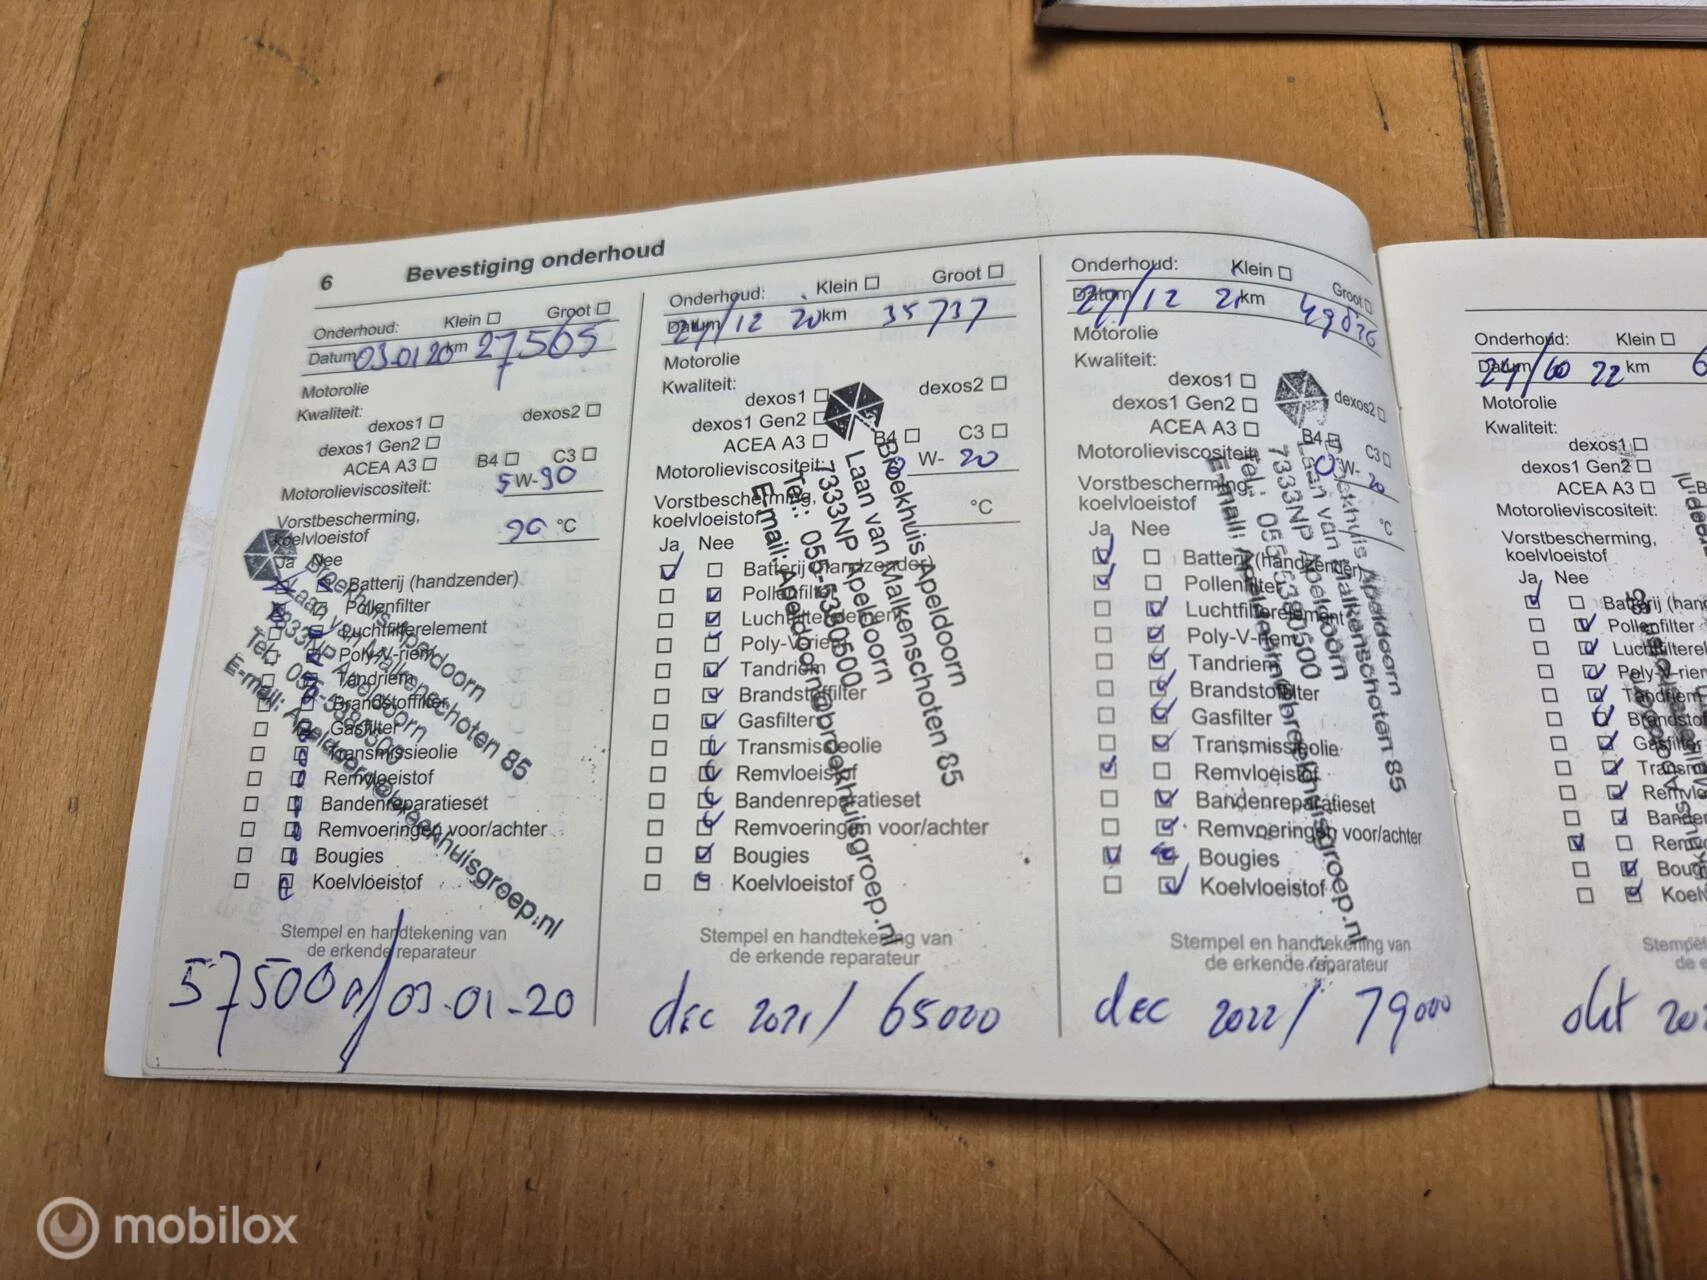 6 Bevestiging onderhoud
Onderhoud: Klein Groot
Datum 03-01 20 km 27565
Motorolie
Kwaliteit:
dexos1 dexos2
dexos1 Gen2
ACEA A3 B4 C3
Motorolieviscositeit: 5 W-30
Vorstbescherming,
koelvloeistof °C
Ja Nee
Batterij (handzender)
Pollenfilter
Luchtfilterelement
Poly-V-riem
Tandriem
Brandstoffilter
Gasfilter
Transmissieolie
Remvloeistof
Bandenreparatieset
Remvoeringen voor/achter
Bougies
Koelvloeistof
Broekhuis Apeldoorn
Laan van Malkenschoten 85
7333NP Apeldoorn
Tel.: 055-5390500
E-mail: Apeldoorn@broekhuisgroep.nl
Stempel en handtekening van
de erkende reparateur
57500 / 03-01-20
Onderhoud: Klein Groot
Datum /12 20 km 35737
Motorolie
Kwaliteit:
dexos1 dexos2
dexos1 Gen2
ACEA A3 B4 C3
Motorolieviscositeit: 0 W- 20
Vorstbescherming,
koelvloeistof °C
Ja Nee
Batterij (handzender)
Pollenfilter
Luchtfilterelement
Poly-V-riem
Tandriem
Brandstoffilter
Gasfilter
Transmissieolie
Remvloeistof
Bandenreparatieset
Remvoeringen voor/achter
Bougies
Koelvloeistof
Broekhuis Apeldoorn
Laan van Malkenschoten 85
7333NP Apeldoorn
Tel.: 055-5390500
E-mail: Apeldoorn@broekhuisgroep.nl
Stempel en handtekening van
de erkende reparateur
dec 2021 / 65000
Onderhoud: Klein Groot
Datum 27/12 21 km
Motorolie
Kwaliteit:
dexos1 dexos2
dexos1 Gen2
ACEA A3 B4 C3
Motorolieviscositeit: 0 W- 20
Vorstbescherming,
koelvloeistof °C
Ja Nee
Batterij (handzender)
Pollenfilter
Luchtfilterelement
Poly-V-riem
Tandriem
Brandstoffilter
Gasfilter
Transmissieolie
Remvloeistof
Bandenreparatieset
Remvoeringen voor/achter
Bougies
Koelvloeistof
Broekhuis Apeldoorn
Laan van Malkenschoten 85
7333NP Apeldoorn
Tel.: 055-5390500
E-mail: Apeldoorn@broekhuisgroep.nl
Stempel en handtekening van
de erkende reparateur
dec 2022 / 79000
Onderhoud: Klein
Datum 22 km 6
Motorolie
Kwaliteit:
dexos1
dexos1 Gen2
ACEA A3 B
Motorolieviscositeit:
Vorstbescherming,
koelvloeistof
Ja Nee
Batterij (han
Pollenfilter
Luchtfilterel
Poly-V-riem
Tandriem
Brandsto
Gasfilter
Transm
Remvlo
Banden
Rem
Boug
Koelv
Stempel
de e
okt 202
mobilox